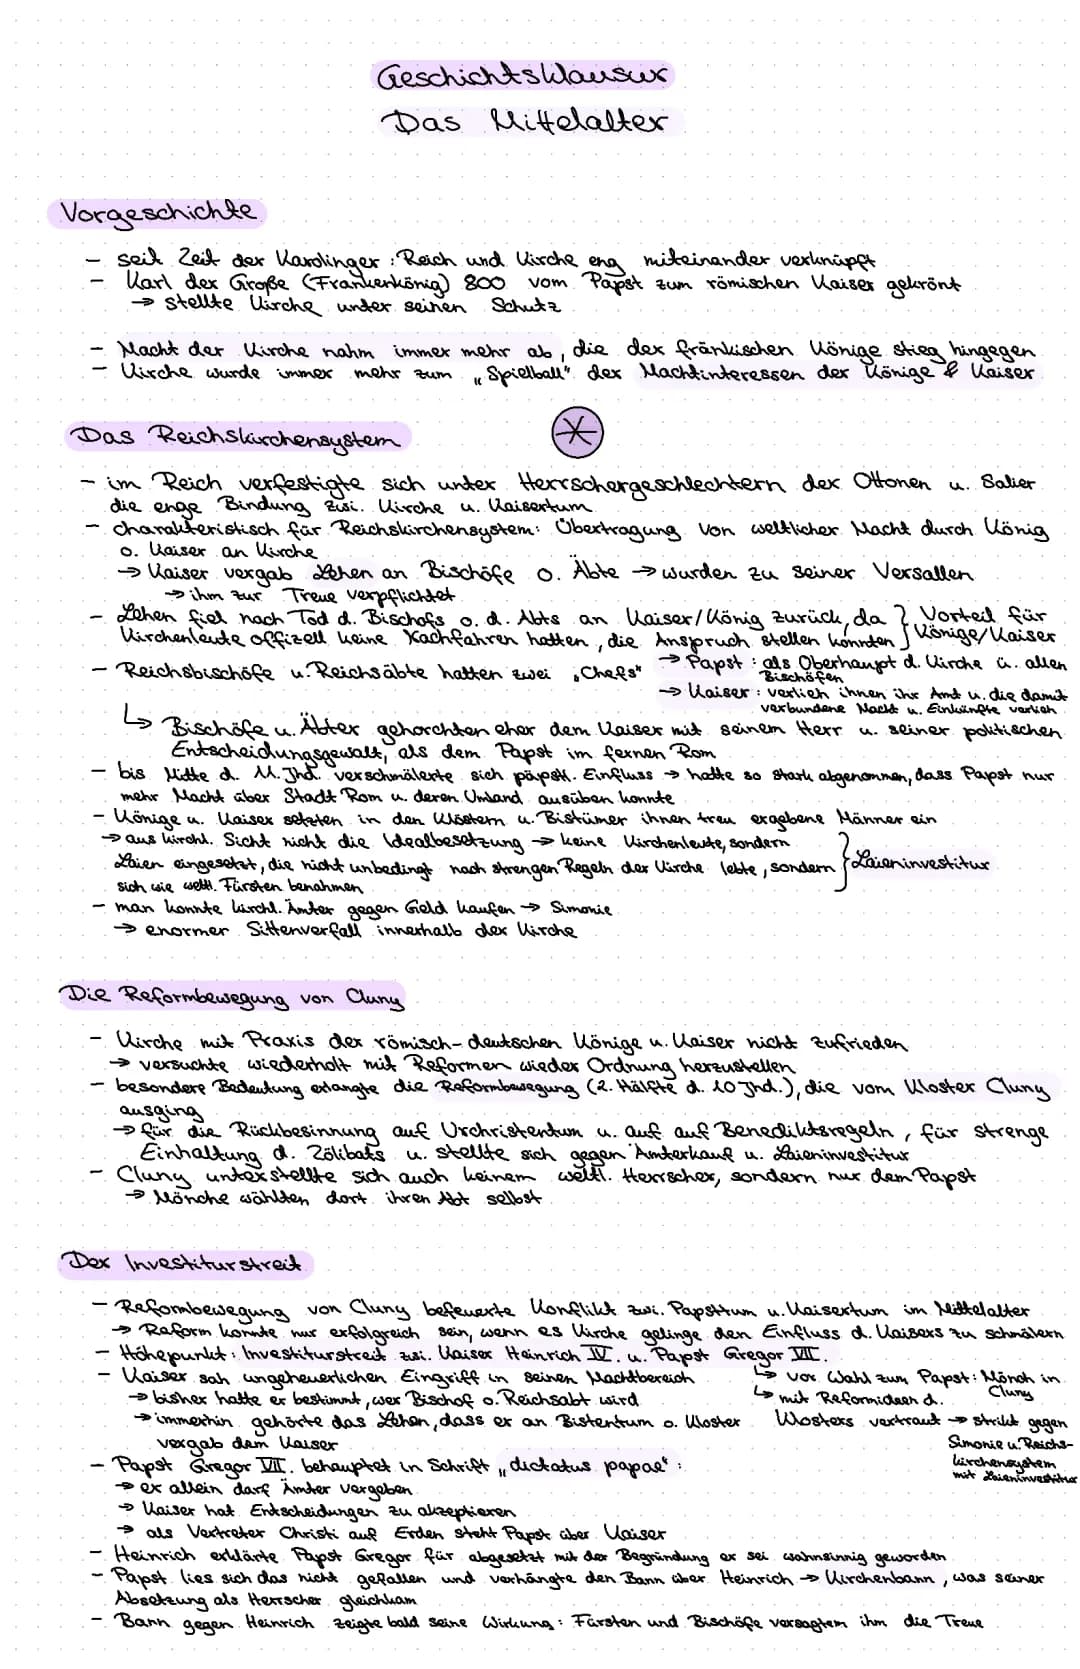 Geschichtsklausur
Das Mittelalter
Vorgeschichte
- seit Zeit der Karolinger: Reich und Kirche eng miteinander verknüpft
- Karl der Große (Frankenkönig) 800 vom Papst zum römischen Kaiser gekrönt
→ stellte Kirche unter seinen Schutz
- Macht der Kirche nahm immer mehr ab, die der fränkischen Könige stieg hingegen
- Kirche wurde immer mehr zum „Spielball" der Machtinteressen der Könige & Kaiser
Das Reichskirchensystem
- im Reich verfestigte sich unter Herrschergeschlechtern der Ottonen u. Salier
die enge Bindung zwi. Kirche u. Kaisertum
- charakteristisch für Reichskirchensystem: Übertragung von weltlicher Macht durch König
o. Kaiser an Kirche
→ Kaiser vergab Lehen an Bischöfe o. Äbte → wurden zu seiner Versallen
→ ihm zur Treue verpflichtet
- Lehen fiel nach Tod d. Bischofs o. d. Abts an Kaiser/König zurück, da } Vorteil für
Kirchenleute offizell keine Nachfahren hatten, die Anspruch stellen konnten } Könige/Kaiser
- Reichsbischöfe u. Reichsäbte hatten zwei „Chefs" → Papst: als Oberhaupt d. Kirche ü. allen
Bischöfen
→ Kaiser: verlieh ihnen ihr Amt u. die damit
verbundene Macht u. Einkünfte verlieh
↳ Bischöfe u. Äbter gehorchten eher dem Kaiser mit seinem Herr u. seiner politischen
Entscheidungsgewalt, als dem Papst im fernen Rom
- bis Mitte d. 11. Jhd. verschmälerte sich päpstl. Einfluss → hatte so stark abgenommen, dass Papst nur
mehr Macht über Stadt Rom u. deren Umland ausüben konnte
- Könige u. Kaiser setzten in den Klöstern u. Bistümer ihnen treu ergebene Männer ein
→ aus kirchl. Sicht nicht die Idealbesetzung → keine Kirchenleute, sondern
Laien eingesetzt, die nicht unbedingt nach strengen Regeln der Kirche lebte, sondern } Laieninvestitur
sich wie weltl. Fürsten benahmen
- man konnte kirchl. Ämter gegen Geld kaufen → Simonie
→ enormer Sittenverfall innerhalb der Kirche
Die Reformbewegung von Cluny
- Kirche mit Praxis der römisch-deutschen Könige u. Kaiser nicht zufrieden
→ versuchte wiederholt mit Reformen wieder Ordnung herzustellen
- besondere Bedeutung erlangte die Reformbewegung (2. Hälfte d. 10 Jhd.), die vom Kloster Cluny
ausging
→ für die Rückbesinnung auf Urchristentum u. auf auf Benediktsregeln, für strenge
Einhaltung d. Zölibats u. stellte sich gegen Ämterkauf u. Laieninvestitur
- Cluny unterstellte sich auch keinem weltl. Herrscher, sondern nur dem Papst
→ Mönche wählten dort ihren Abt selbst
Der Investiturstreit
- Reformbewegung von Cluny befeuerte Konflikt zwi. Papsttum u. Kaisertum im Mittelalter
→ Reform konnte nur erfolgreich sein, wenn es Kirche gelinge den Einfluss d. Kaisers zu schmälern
- Höhepunkt: Investiturstreit zwi. Kaiser Heinrich IV. u. Papst Gregor VII.
- Kaiser sah ungeheuerlichen Eingriff in seinen Machtbereich
↳ vor Wahl zum Papst: Mönch in
Cluny
→ bisher hatte er bestimmt, wer Bischof o. Reichsabt wird
↳ mit Reformideen d.
Klosters vertraut → strikt gegen
Simonie u. Reichs-
kirchensystem
mit Laieninvestitur
→ immerhin gehörte das Lehen, dass er an Bistentum o. Kloster
vergab dem Kaiser
- Papst Gregor VII. behauptet in Schrift „dictatus papae":
→ er allein darf Ämter vergeben
→ Kaiser hat Entscheidungen zu akzeptieren
→ als Vertreter Christi auf Erden steht Papst über Kaiser
- Heinrich erklärte Papst Gregor für abgesetzt mit der Begründung er sei wahnsinnig geworden
- Papst lies sich das nicht gefallen und verhängte den Bann über Heinrich → Kirchenbann, was seiner
Absetzung als Herrscher gleichkam
- Bann gegen Heinrich zeigte bald seine Wirkung: Fürsten und Bischöfe versagtem ihm die Treue